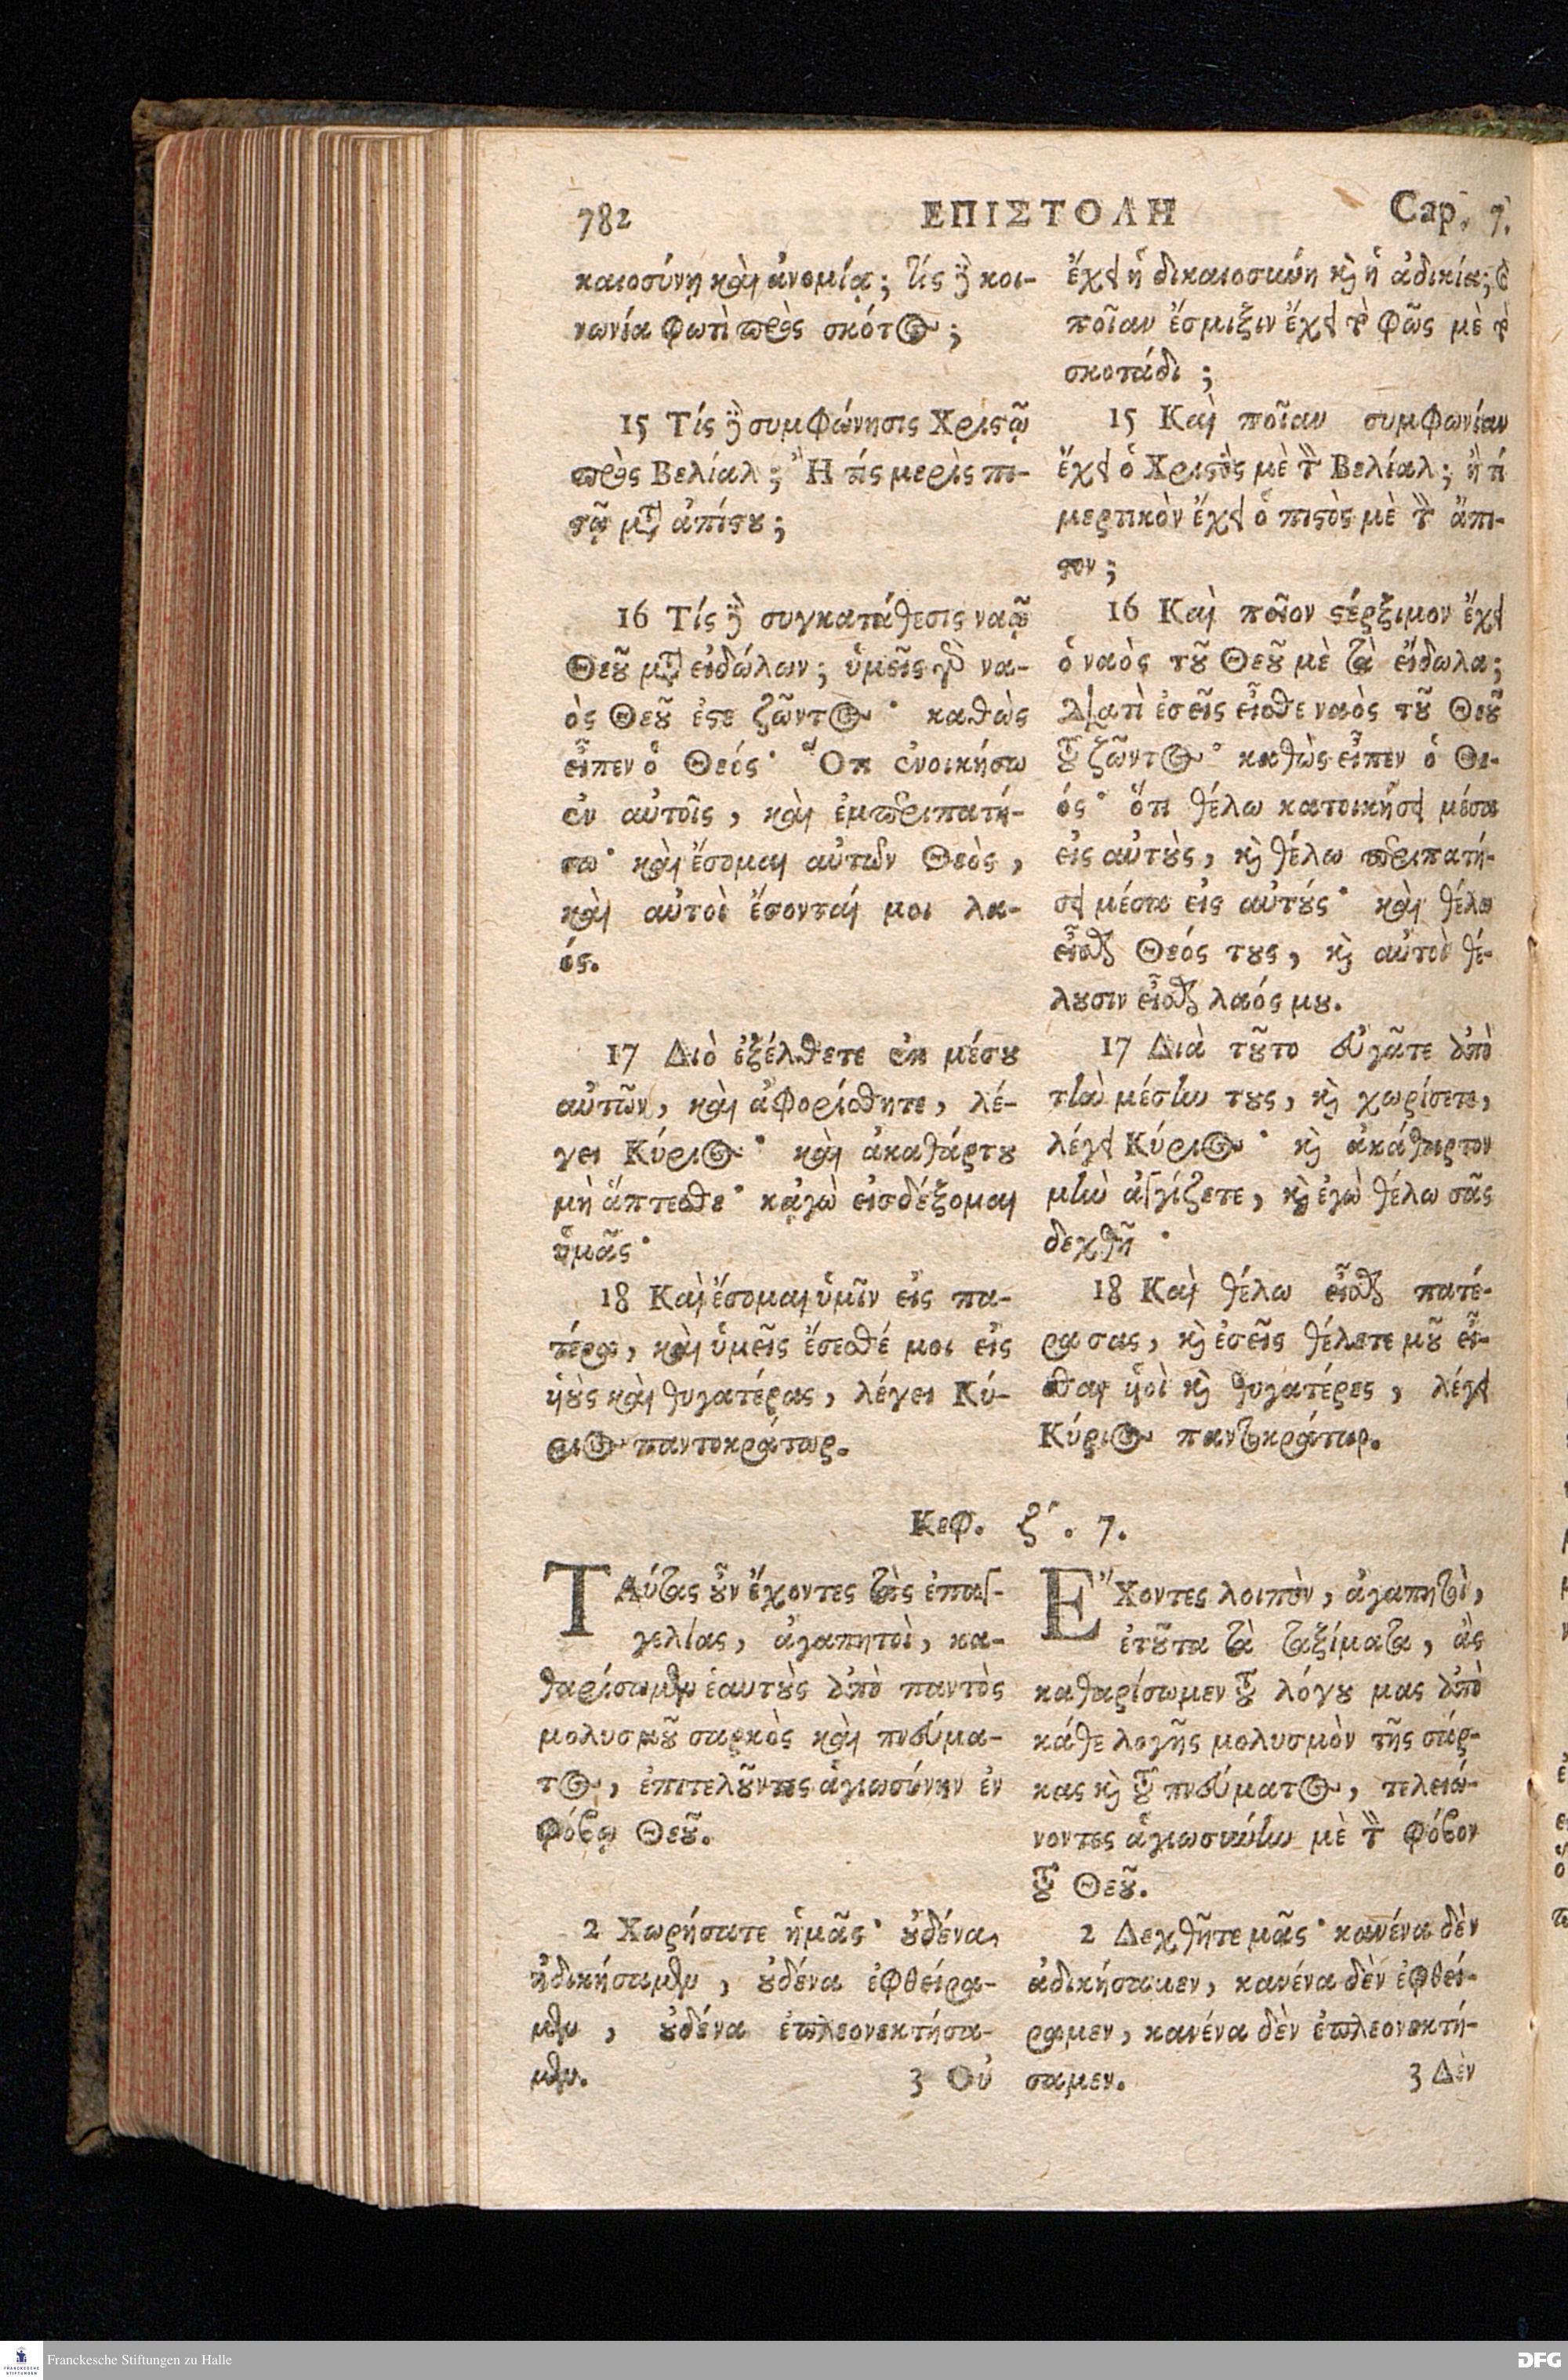 782 ΕΠΙΣΤΟΛΗ Cap. 7.
καιοσύνῃ καὶ ἀνομίᾳ; τίς δὲ κοι-
νωνία φωτὶ πρὸς σκότος;
15 Τίς δὲ συμφώνησις Χριστῷ
πρὸς Βελίαλ; Ἢ τίς μερὶς πι-
στῷ μετὰ ἀπίστου;
16 Τίς δὲ συγκατάθεσις ναῷ
Θεοῦ μετὰ εἰδώλων; ὑμεῖς γὰρ να-
ὸς Θεοῦ ἐστε ζῶντος· καθὼς
εἶπεν ὁ Θεός· Ὅτι ἐνοικήσω
ἐν αὐτοῖς, καὶ ἐμπεριπατή-
σω· καὶ ἔσομαι αὐτῶν Θεὸς,
καὶ αὐτοὶ ἔσονταί μοι λα-
ός.
17 Διὸ ἐξέλθετε ἐκ μέσου
αὐτῶν, καὶ ἀφορίσθητε, λέ-
γει Κύριος· καὶ ἀκαθάρτου
μὴ ἅπτεσθε· κᾀγὼ εἰσδέξομαι
ὑμᾶς·
18 Καὶ ἔσομαι ὑμῖν εἰς πα-
τέρα, καὶ ὑμεῖς ἔσεσθέ μοι εἰς
υἱοὺς καὶ θυγατέρας, λέγει Κύ-
ριος παντοκράτωρ.
ἔχει ἡ δικαιοσύνη καὶ ἡ ἀδικία;
ποῖαν ἔσμιξιν ἔχει τὸ φῶς μὲ τὸ
σκοτάδι;
15 Καὶ ποῖαν συμφωνίαν
ἔχει ὁ Χριστὸς μὲ τὸν Βελίαλ; ἢ τί
μερτικὸν ἔχει ὁ πιστὸς μὲ τὸν ἄπι-
στον;
16 Καὶ ποῖον στέρξιμον ἔχει
ὁ ναὸς τοῦ Θεοῦ μὲ τὰ εἴδωλα;
διατὶ ἐσεῖς εἶσθε ναὸς τοῦ Θεοῦ
τοῦ ζῶντος· καθὼς εἶπεν ὁ Θε-
ός· ὅτι θέλω κατοικήσει μέσα
εἰς αὐτοὺς, καὶ θέλω περιπατή-
σει μέσα εἰς αὐτούς· καὶ θέλω
εἶσθαι Θεός τους, καὶ αὐτοὶ θέ-
λουσιν εἶσθαι λαός μου.
17 Διὰ τοῦτο εὐγᾶτε ἀπὸ
τὴν μέσην τους, καὶ χωρίσετε,
λέγει Κύριος· καὶ ἀκάθαρτον
μὴν ἀγγίζετε, καὶ ἐγὼ θέλω σᾶς
δεχθῆ·
18 Καὶ θέλω εἶσθαι πατέ-
ρα σας, καὶ ἐσεῖς θέλετε μοῦ εἶ-
σθαι υἱοὶ καὶ θυγατέρες, λέγει
Κύριος παντοκράτωρ.
Κεφ. ζ΄. 7.
ΤΑύτας οὖν ἔχοντες τὰς ἐπαγ-
γελίας, ἀγαπητοὶ, κα-
θαρίσωμεν ἑαυτοὺς ἀπὸ παντὸς
μολυσμοῦ σαρκὸς καὶ πνεύμα-
τος, ἐπιτελοῦντες ἁγιωσύνην ἐν
φόβῳ Θεοῦ.
2 Χωρήσατε ἡμᾶς· οὐδένα
ἠδικήσαμεν, οὐδένα ἐφθείρα-
μεν, οὐδένα ἐπλεονεκτήσα-
μεν. 3 Οὐ
ἜΧοντες λοιπὸν, ἀγαπητοὶ,
ἐτοῦτα τὰ ταξίματα, ἂς
καθαρίσωμεν τοῦ λόγου μας ἀπὸ
κάθε λογῆς μολυσμὸν τῆς σάρ-
κας καὶ τοῦ πνεύματος, τελειώ-
νοντες ἁγιωσύνην μὲ τὸν φόβον
τοῦ Θεοῦ.
2 Δεχθῆτε μᾶς· κανένα δὲν
ἀδικήσαμεν, κανένα δὲν ἐφθεί-
ραμεν, κανένα δὲν ἐπλεονεκτή-
σαμεν. 3 Δὲν
FRANCKESCHE STIFTUNGEN
Franckesche Stiftungen zu Halle
DFG